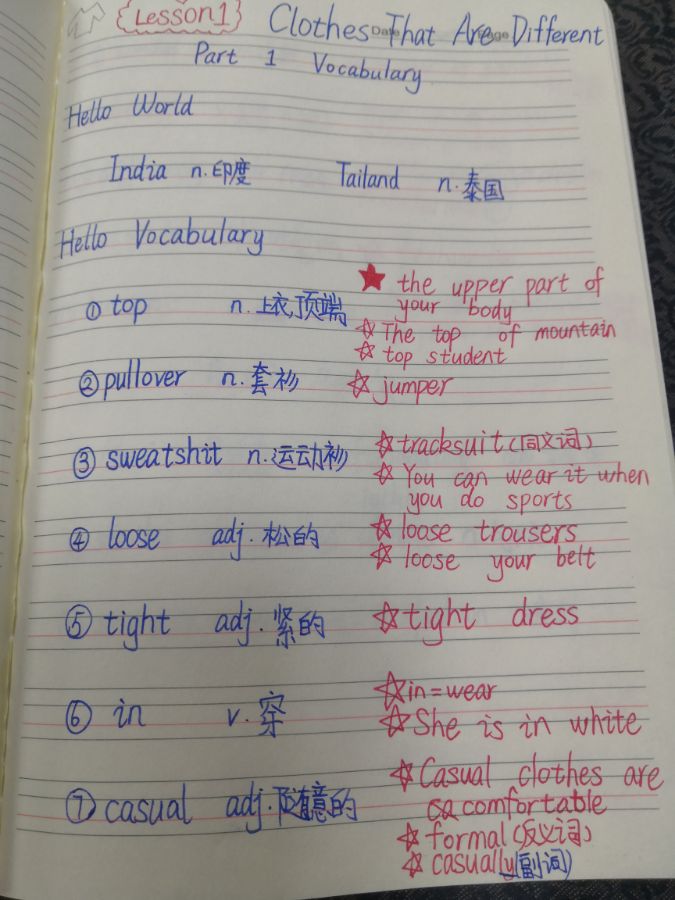 Lesson1 Clothes That Are Different
Part 1 Vocabulary
Hello World
India n.印度 Tailand n.泰国
Hello Vocabulary
① top n.上衣,顶端 ★ the upper part of
your body
☆ The top of mountain
☆ top student
② pullover n.套衫 ☆ jumper
③ sweatshit n.运动衫 ☆ tracksuit(同义词)
☆ You can wear it when
you do sports
④ loose adj.松的 ☆ loose trousers
☆ loose your belt
⑤ tight adj.紧的 ☆ tight dress
⑥ in v.穿 ☆ in=wear
☆ She is in white
⑦ casual adj.随意的 ☆ Casual clothes are
comfortable
☆ formal(反义词)
☆ casually(副词)